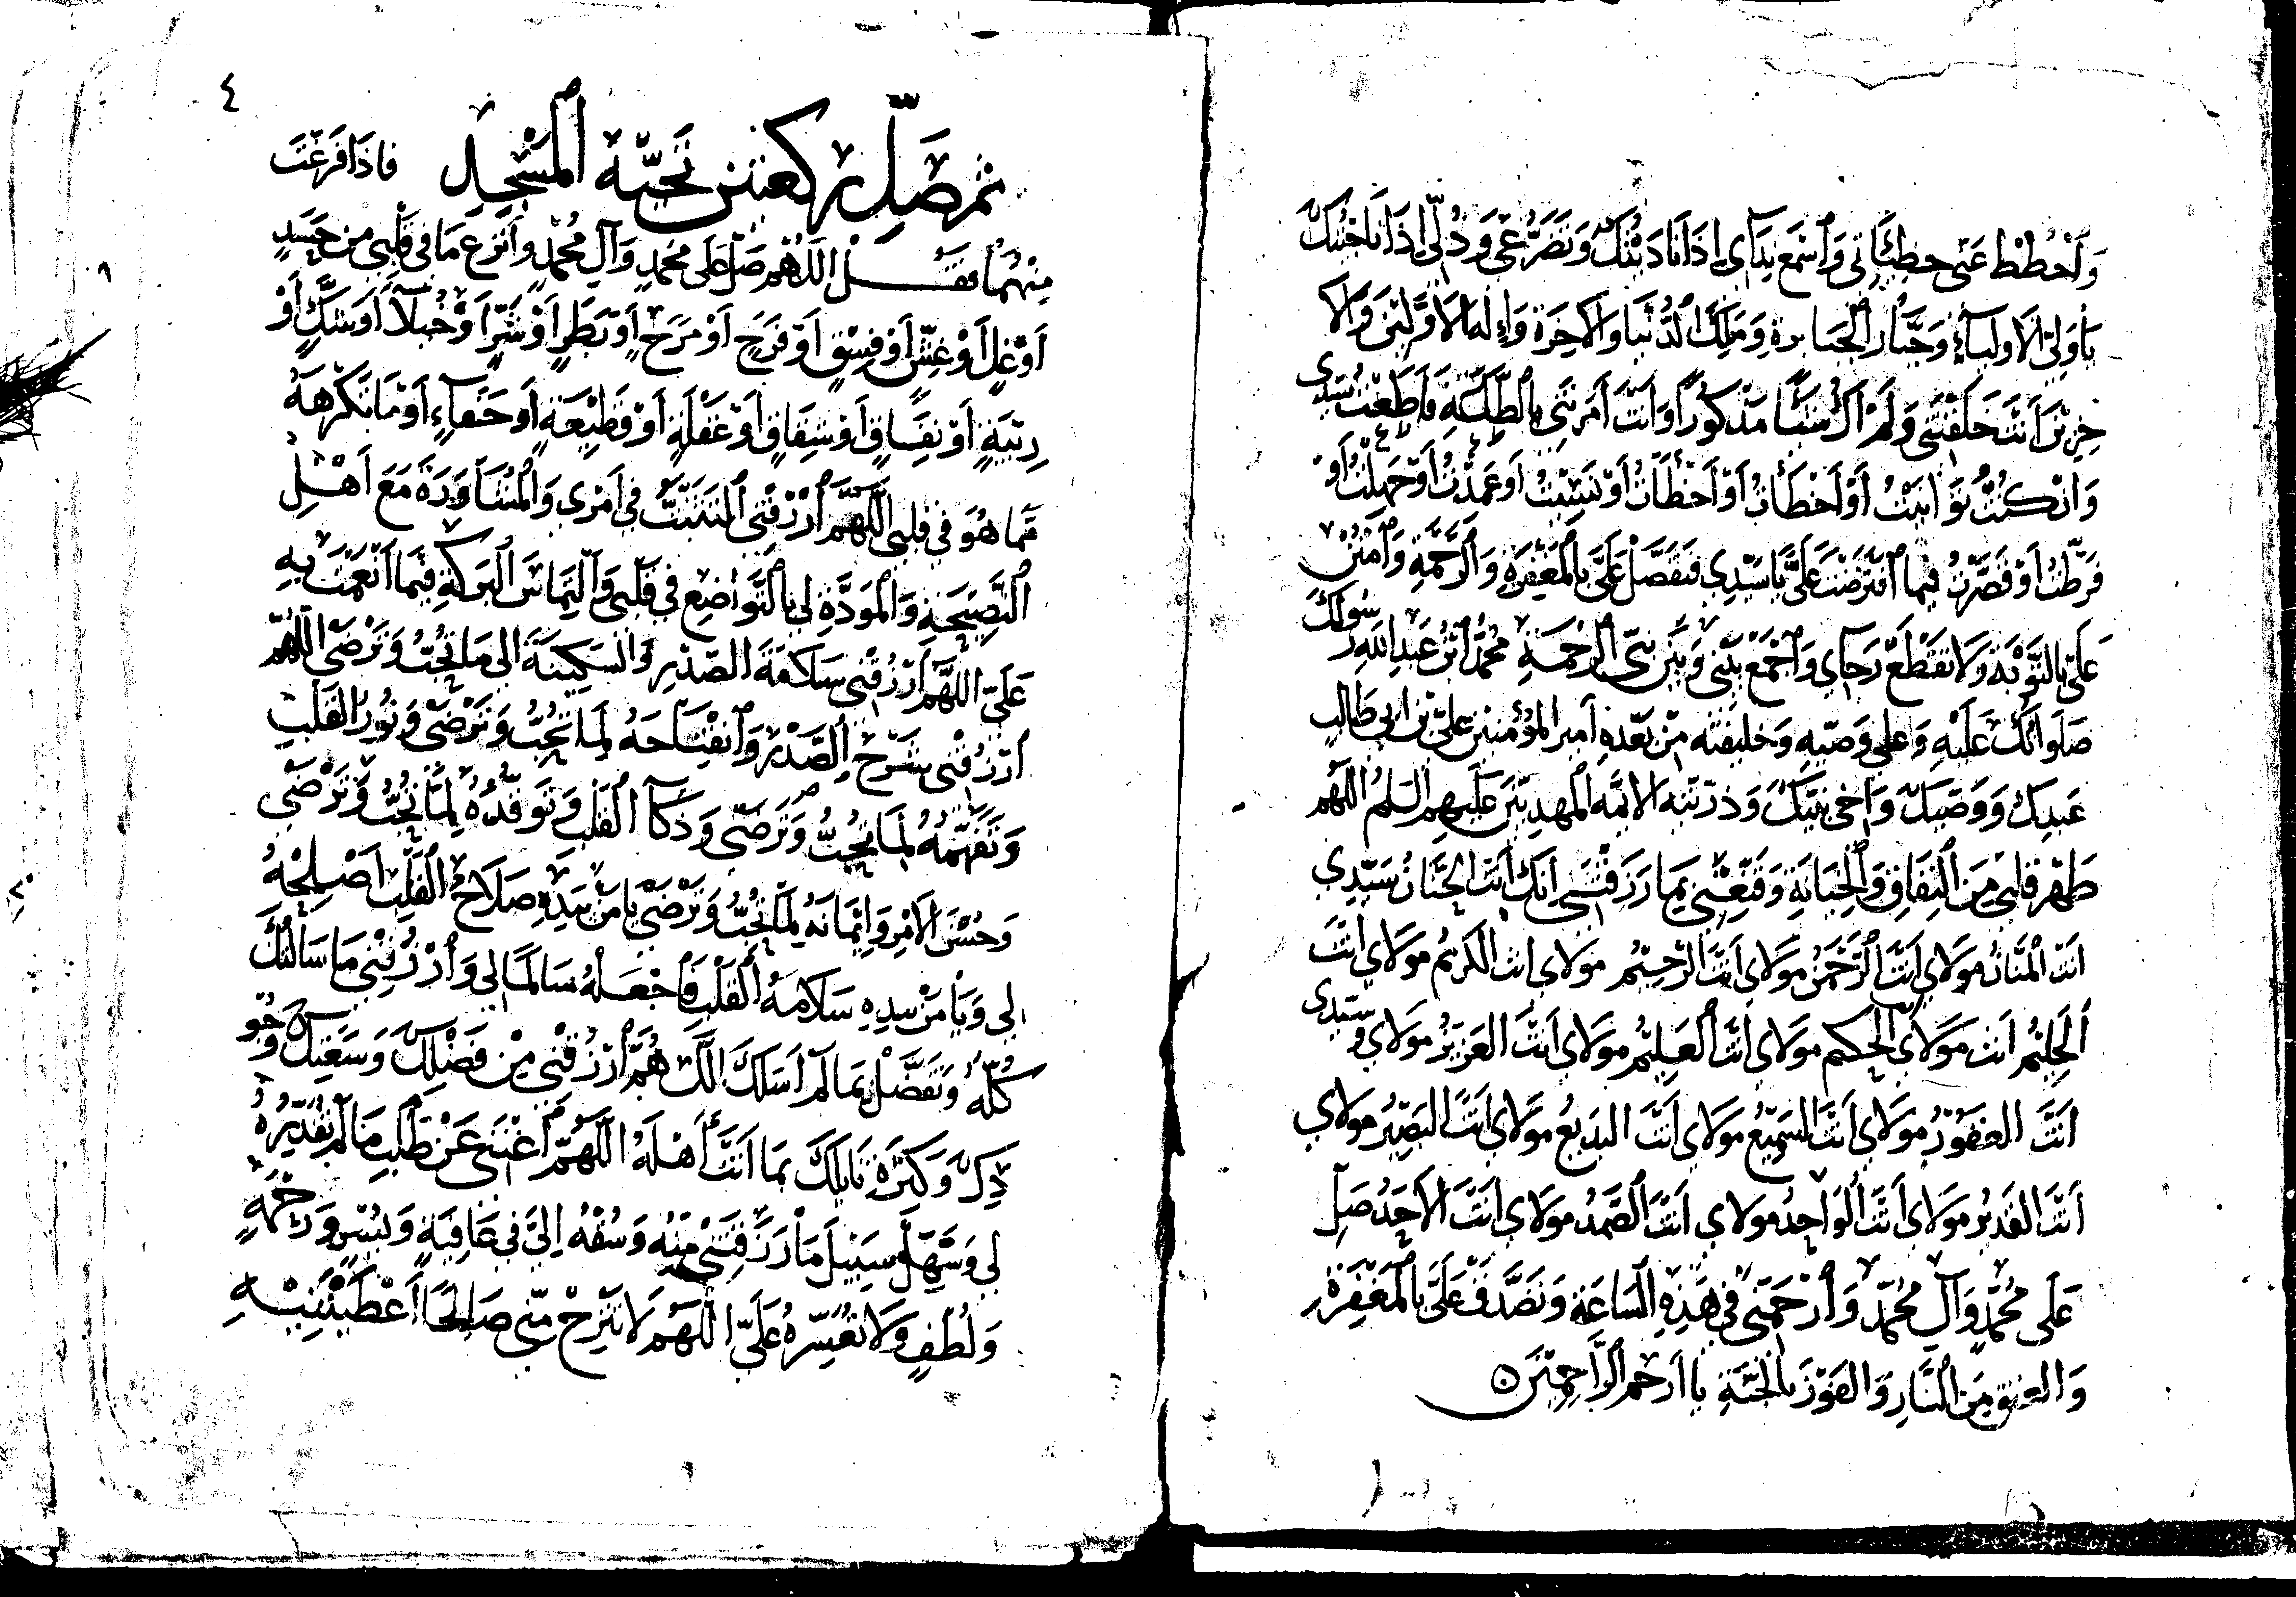 وَاحْطُطْ عَنّى خطِيئَاتى وَاسْمَع نِدَآى اِذَا نَادَيْتُكَ وَتَضَرُّعى وَذُلّى اِذَا نَاجَيْتُكَ
يَا وَلِىَّ الاَولِيَاءِ وَجَبَّارَ الْجَبَابِرَةِ وَمَلِكَ الدُّنْيَا وَالاخِرَة وَاِلهَ الاَوَّلِينَ وَالا
خِرِيْنَ اَنْتَ خَلَقْتَنى وَلَمْ اَكُ شَيْئًا مَذْكُورًا وَاَنْتَ اَمَرْتَنى بِالطَّاعَةِ فَاَطَعْتُ سَيّدى
وَاِنْ كُنْتُ تَوَانَيْتُ اَوْ اَخْطَأتُ اَوْ نَسِيْتُ اَو تَعَمَّدْتُ اَوْ جَهِلْتُ اَوْ
فَرَّطْتُ اَوْ قَصَّرْتُ فِيْمَا افْتَرَضْتَ عَلَىَّ يَا سَيّدِى فَتَفَضَّلْ عَلَىَّ بِالْمَغْفِرَةِ وَالرَّحْمَةِ وَامْنُنْ
عَلَىَّ بِالتَّوْبَةِ وَلا تَقْطَعْ رَجَآى وَاجْمَعْ بَيْنى وَبَيْنَ نَبىّ الرَّحْمَةِ مُحَمَّدِ ابْنِ عَبدِ اللهِ رَسُولِكَ
صَلَوَاتُكَ عَلَيْهِ وَعلى وَصيّهِ وَخليفته مِنْ بَعْدِهِ اَمير المؤمنين عَلىّ بن ابى طَالبٍ
عَبدِكَ وَوَصيّكَ وَاَخى نبيّكَ وَذرّيّته الائمّه المهديّينَ عَلَيهِم السَلمُ اللَهُم
طَهّر قَلبى مِنَ النِفَاقِ وَالخِيَانَةِ وَقَنِّعْنى بِمَا رَزَقْتَنى اِنَّكَ اَنْتَ الحَنَّانُ سَيّدِى
اَنتَ الْمَنَّانُ مَوْلاىَ اَنْتَ الرَّحْمَنُ مَولاىَ اَنْتَ الرَّحِيْمُ مَولاىَ انتَ الكَرِيْمُ مَولاىَ اَنْتَ
الْحَلِيْمُ اَنتَ مَولاىَ الحَكيم مَولاىَ اَنْتَ العَلِيْمُ مَولاىَ اَنْتَ العَزِيْزُ مَولاىَ وَسَيّدى
اَنْتَ الغَفُوْرُ مَوْلاىَ اَنْتَ السَمِيْعُ مَولاىَ اَنْتَ البَدِيْعُ مَولاىَ اَنْتَ البَصِيْرُ مَولاىَ
اَنْتَ القَدِيْرُ مَوْلاىَ اَنْتَ الوَاحِدُ مَولاىَ اَنْتَ الصَّمَدُ مَولاىَ اَنْتَ الاَحَدُ صَلِّ
عَلَى مُحَمَّدٍ وَآلِ مُحَمَّدٍ وَارْحَمْنى فى هَذِهِ السَاعَةِ وَتَصَدَّقْ عَلَىَّ بِالْمَغْفِرَةِ
وَالعِتقِ مِنَ النَّارِ وَالفَوْزَ بِالجَنَّةِ يا اَرْحَم الرَّاحِمِيْنَ
٤
ثم صَلِّ ركعتين تَحيّة المسْجِد فاذَا فَرَغْتَ
مِنْهُمَا فَقُلْ اللَّهُمّ صَلّ عَلَى مُحَمَّدٍ وَآلِ مُحَمَّدٍ وَانْزَعْ مَا فى قَلْبى مِن حَسَدٍ
اَوْ غِلٍّ اَوْ غِشٍّ اَوْ فِسْقٍ اَوْ فَرَحٍ اَوْ مَرَحٍ اَوْ بَطَرٍ اَوْ شَرٍّ اَوْ خُيَلآ اَوْ شَكٍّ اَوْ
رِيْبَةٍ اَوْ نِفَاقٍ اَوْ شِقَاقٍ اَوْ غَفْلَةٍ اَوْ قَطِيْعَةٍ اَو جَفَآءٍ اَوْ مَا تَكْرَهُهُ
مِمَّا هُوَ فى قلبى اللَّهُمَّ ارْزُقْنى التَثَبُّتَ فى اَمْرِى وَالْمُشَاوَرَةَ مَعَ اَهْلِ
النَّصِيْحَةِ وَالْمَوَدَّةِ لى بِالتَّوَاضِعِ فى قَلْبى وَالْتِمَاسَ البَرَكَةِ فِيْمَا اَنْعَمْتَ بِهِ
عَلَىّ اللَّهُمَّ ارْزُقْنى سَلامَةَ الصَّدْرِ وَالسَكِيْنَةَ الى مَا تُحِبُّ وَتَرْضَى اللَّهُمَّ
ارْزُقْنى شَرْحَ الصَّدْرِ وَانْفِتَاحَهُ لِمَا تُحِبُّ وَتَرْضَى وَنُورَ القَلْبِ
وَتَفَهُّمَهُ لِمَا تُحِبُّ وَتَرْضَى وَذَكَآ القَلْبِ وَتَوَقُّدَهُ لِمَا تُحِبُّ وَتَرْضَى
وَحُسْنَ الاَمْرِ وَاِيْمَانَهُ لِمَا تُحِبُّ وَتَرْضَى يَا مَنْ بِيَدِهِ صَلاَحُ القَلْبِ اَصْلِحْهُ
لِى وَيَا مَنْ بِيَدِهِ سَلاَمَةُ القَلْبِ فَاجْعَلْهُ سَالِمًا لِى وَارْزُقْنِى مَا سَاَلْتُكَ
كُلَّهُ وَتَفَضَّلْ بِمَا لَمْ اَسْئَلْكَ اللَّهُمَّ ارْزُقْنى مِنْ فَضْلِكَ وَسَعَتِكَ وَجُو
دِكَ وَكَثْرَةِ نَايِلِكَ بِمَا اَنْتَ اَهْلُهُ اللَّهُمَّ اَغْنِنى عَنْ طَلَبِ مَا لَمْ تُقَدِّرْهُ
لى وَسَهِّلْ سَبِيْلَ مَا رَزَقْتَنى مِنْهُ وَسُقْهُ اِلَىَّ فى عَافِيَةٍ وَيُسْرٍ وَرَحْمَةٍ
وَلُطْفٍ وَلاَ تُعَسِّرْهُ عَلَىَّ اللَّهُمَّ لاَ تَنْزِعْ مِنّى صَالِحًا اَعْطَيْتَنِيْهِ